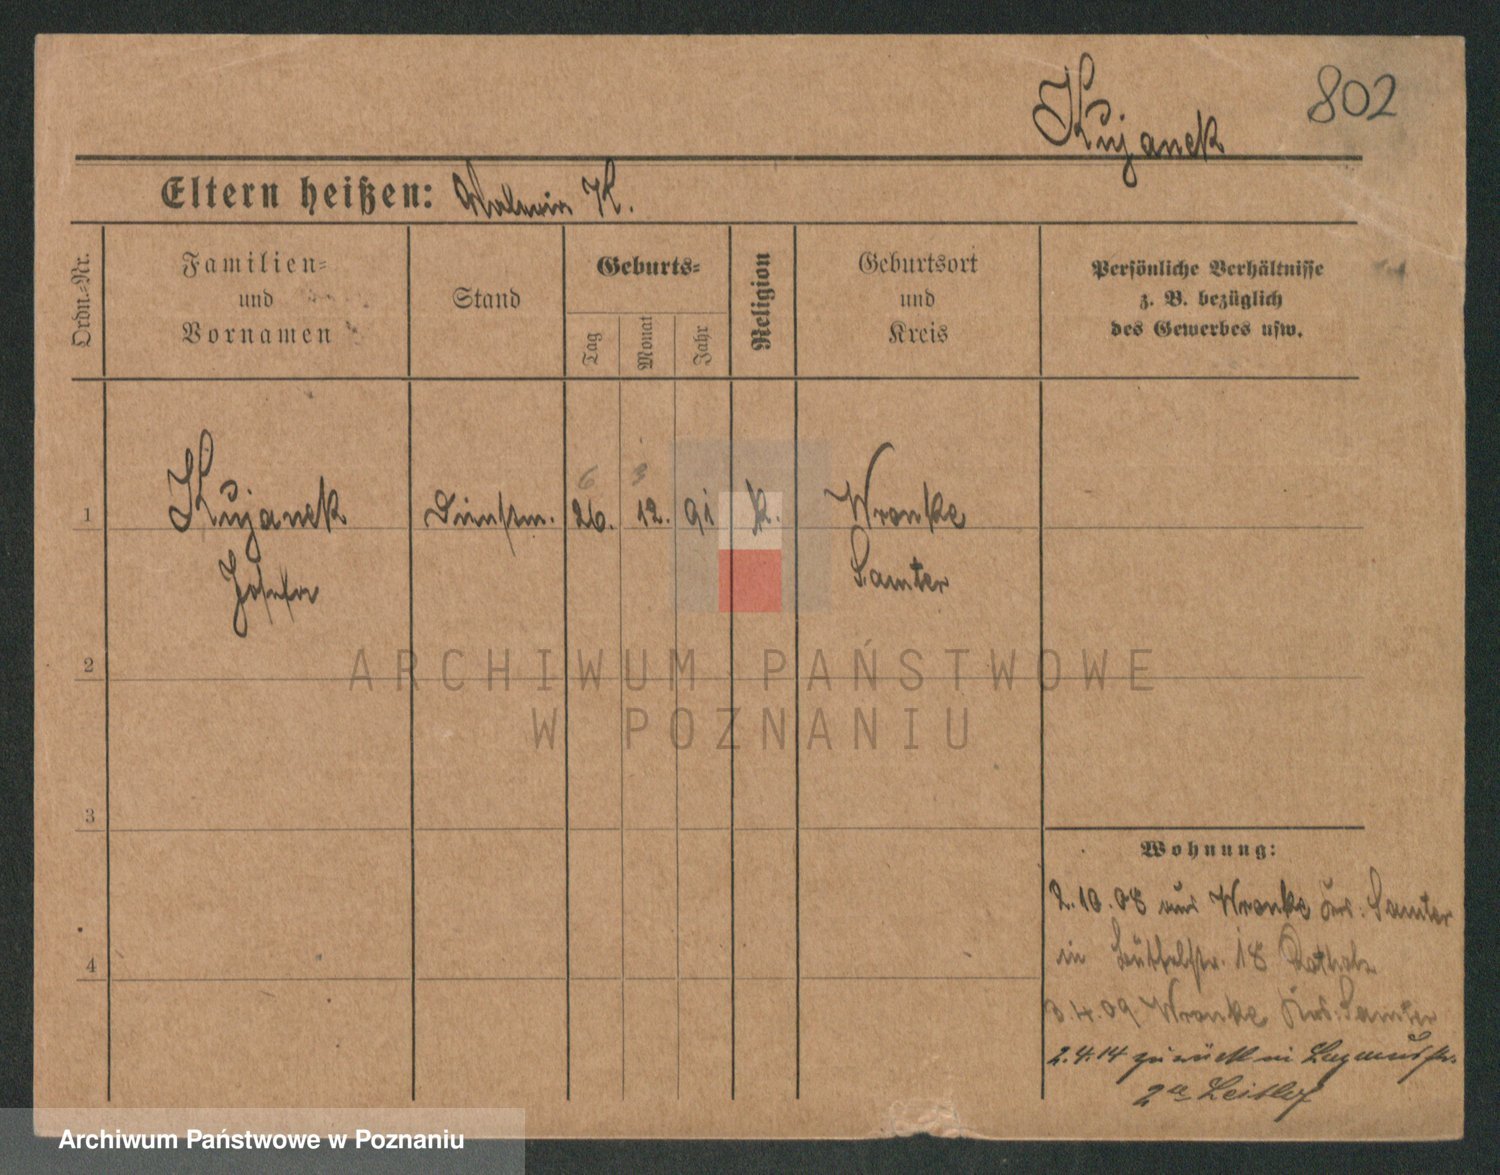 802
Kujanek
Eltern heißen: K.
Ordn.-Nr.
Familien-
und
Vornamen
Stand
Geburts-
Tag
Monat
Jahr
Religion
Geburtsort
und
Kreis
Persönliche Verhältnisse
z. B. bezüglich
des Gewerbes usw.
6 3
1 Kujanek Dienstm. 26. 12. 91 k. Wronke
Josefa Samter
2
3
4
Wohnung:
2.10.08 aus Wronke Krs. Samter
in 18
3.4.09 Wronke Krs. Samter
2.4.14 zurück in
2
ARCHIWUM PAŃSTWOWE
W POZNANIU
Archiwum Państwowe w Poznaniu